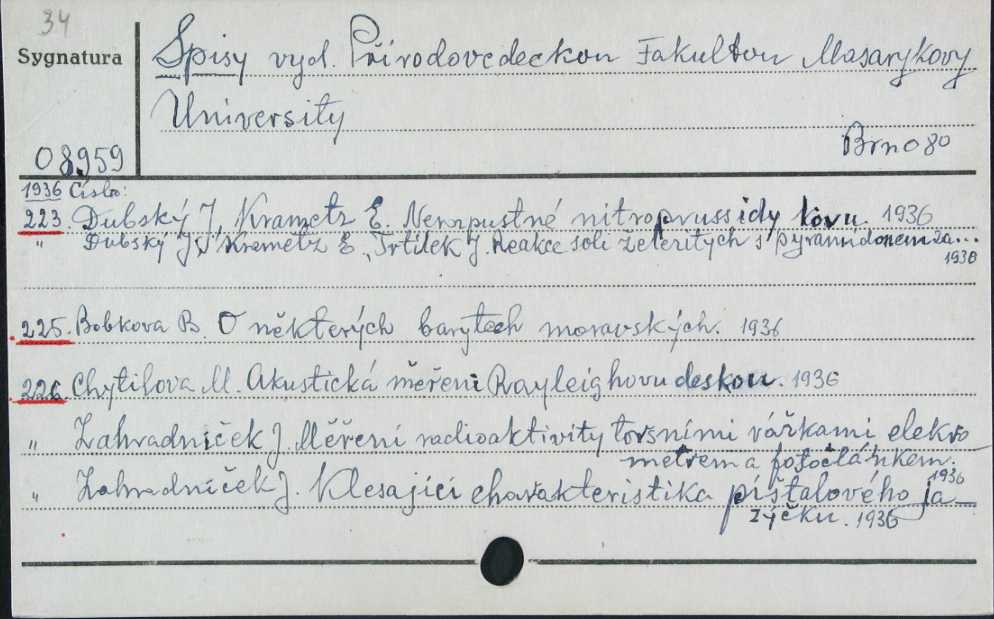 34
Sygnatura
Spisy vyd. Přírodovědeckou Fakultou Masarykovy
University
Brno 80
08959
1936 Číslo:
223. Dubský J, Krametz E. Nerozpustné nitroprussidy kovu. 1936
" Dubský J, Kremetz E., Trtilek J. Reakce soli železitých s pyramidonem za...
1936
225. Bobkova B. O některých barytech moravských. 1936
226. Chytilova M. Akustická měřeni Rayleighovu deskou. 1936
" Zahradníček J. Měření radioaktivity torsními vážkami elektro
metrem a fotočlánkem.
1936
" Zahradníček J. Klesající charakteristika píšťalového ja-
zýčku. 1936